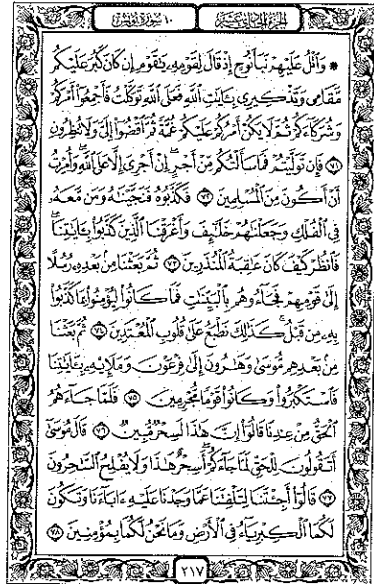 الجزء الحادي عشر
١٠ سورة يونس
* وَٱتْلُ عَلَيْهِمْ نَبَأَ نُوحٍ إِذْ قَالَ لِقَوْمِهِۦ يَٰقَوْمِ إِن كَانَ كَبُرَ عَلَيْكُم
مَّقَامِى وَتَذْكِيرِى بِـَٔايَٰتِ ٱللَّهِ فَعَلَى ٱللَّهِ تَوَكَّلْتُ فَأَجْمِعُوٓا۟ أَمْرَكُمْ
وَشُرَكَآءَكُمْ ثُمَّ لَا يَكُنْ أَمْرُكُمْ عَلَيْكُمْ غُمَّةً ثُمَّ ٱقْضُوٓا۟ إِلَىَّ وَلَا تُنظِرُونِ
٧١ فَإِن تَوَلَّيْتُمْ فَمَا سَأَلْتُكُم مِّنْ أَجْرٍ إِنْ أَجْرِىَ إِلَّا عَلَى ٱللَّهِ وَأُمِرْتُ
أَنْ أَكُونَ مِنَ ٱلْمُسْلِمِينَ ٧٢ فَكَذَّبُوهُ فَنَجَّيْنَٰهُ وَمَن مَّعَهُۥ
فِى ٱلْفُلْكِ وَجَعَلْنَٰهُمْ خَلَٰٓئِفَ وَأَغْرَقْنَا ٱلَّذِينَ كَذَّبُوا۟ بِـَٔايَٰتِنَا
فَٱنظُرْ كَيْفَ كَانَ عَٰقِبَةُ ٱلْمُنذَرِينَ ٧٣ ثُمَّ بَعَثْنَا مِنۢ بَعْدِهِۦ رُسُلًا
إِلَىٰ قَوْمِهِمْ فَجَآءُوهُم بِٱلْبَيِّنَٰتِ فَمَا كَانُوا۟ لِيُؤْمِنُوا۟ بِمَا كَذَّبُوا۟
بِهِۦ مِن قَبْلُ كَذَٰلِكَ نَطْبَعُ عَلَىٰ قُلُوبِ ٱلْمُعْتَدِينَ ٧٤ ثُمَّ بَعَثْنَا
مِنۢ بَعْدِهِم مُّوسَىٰ وَهَٰرُونَ إِلَىٰ فِرْعَوْنَ وَمَلَإِي۟هِۦ بِـَٔايَٰتِنَا
فَٱسْتَكْبَرُوا۟ وَكَانُوا۟ قَوْمًا مُّجْرِمِينَ ٧٥ فَلَمَّا جَآءَهُمُ
ٱلْحَقُّ مِنْ عِندِنَا قَالُوٓا۟ إِنَّ هَٰذَا لَسِحْرٌ مُّبِينٌ ٧٦ قَالَ مُوسَىٰٓ
أَتَقُولُونَ لِلْحَقِّ لَمَّا جَآءَكُمْ أَسِحْرٌ هَٰذَا وَلَا يُفْلِحُ ٱلسَّٰحِرُونَ
٧٧ قَالُوٓا۟ أَجِئْتَنَا لِتَلْفِتَنَا عَمَّا وَجَدْنَا عَلَيْهِ ءَابَآءَنَا وَتَكُونَ
لَكُمَا ٱلْكِبْرِيَآءُ فِى ٱلْأَرْضِ وَمَا نَحْنُ لَكُمَا بِمُؤْمِنِينَ ٧٨
٢١٧